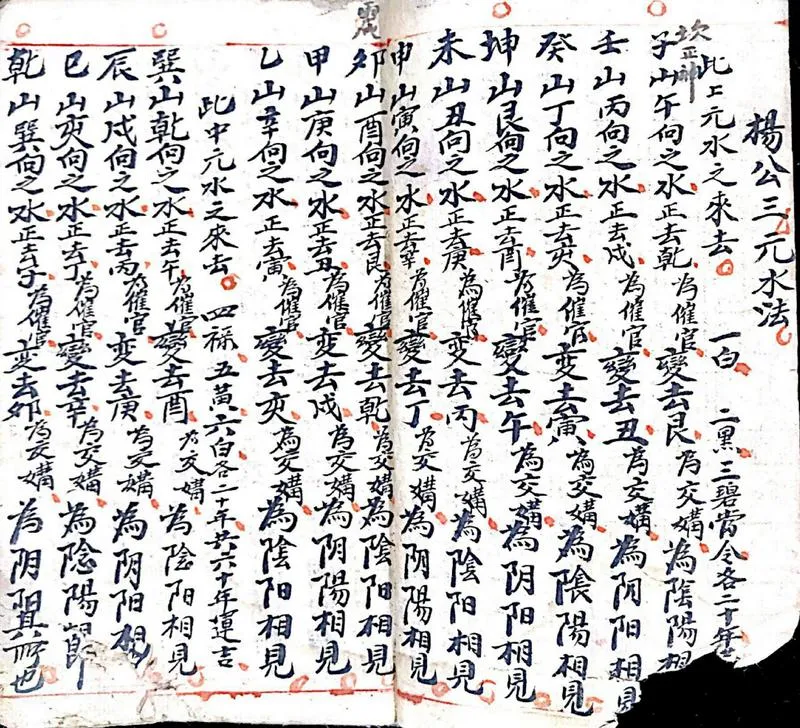 楊公三元水法
此上元水之來去 一白 二黑 三碧當令各二十年
坎正神
子山午向之水正去乾為催官變去艮為交媾為陰陽相
壬山丙向之水正去戍為催官變去丑為交媾為阴阳相見
癸山丁向之水正去亥為催官变去寅為交媾為陰陽相見
坤山艮向之水正去酉為催官變去午為交媾為阴阳相見
未山丑向之水正去庚為催官变去丙為交媾為陰阳相見
申山寅向之水正去辛為催官變去丁為交媾為阴陽相見
卯山酉向之水正去艮為催官變去乾為交媾為陰阳相見
甲山庚向之水正去丑為催官变去戍為交媾為阴陽相見
乙山辛向之水正去寅為催官變去亥為交媾為陰阳相見
此中元水之來去 四禄五黃六白各二十年共六十年運吉
巽山乾向之水正去午為催官變去酉為交媾為陰阳相見
辰山戍向之水正去丙為催官变去庚為交媾為阴阳相
巳山亥向之水正去丁為催官變去辛為交媾為陰陽
乾山巽向之水正去子為催官变去卯為交媾為阴阳其所也